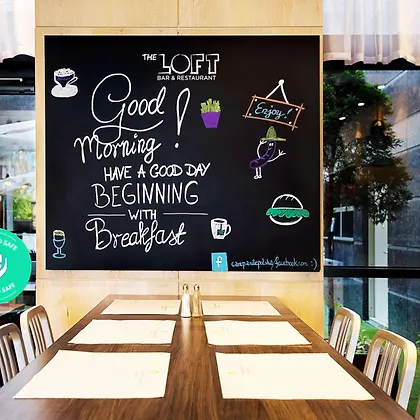 THE LOFT
BAR & RESTAURANT
Good
Morning!
Enjoy!
HAVE A GOOD DAY
BEGINNING
WITH
Breakfast
f
SAFE
SAFE